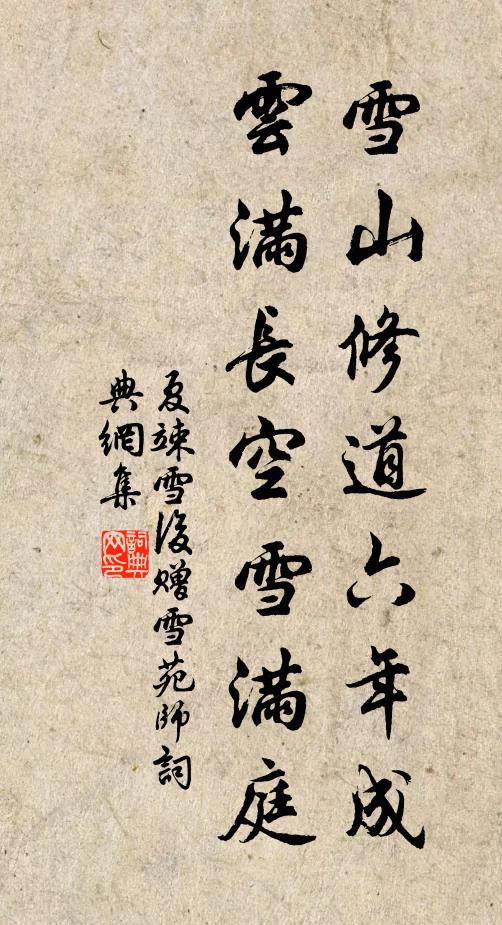 雪山修道六年成
雲滿長空雪滿庭
夏竦雪後贈雪苑師詞
典網集
詞典
网印